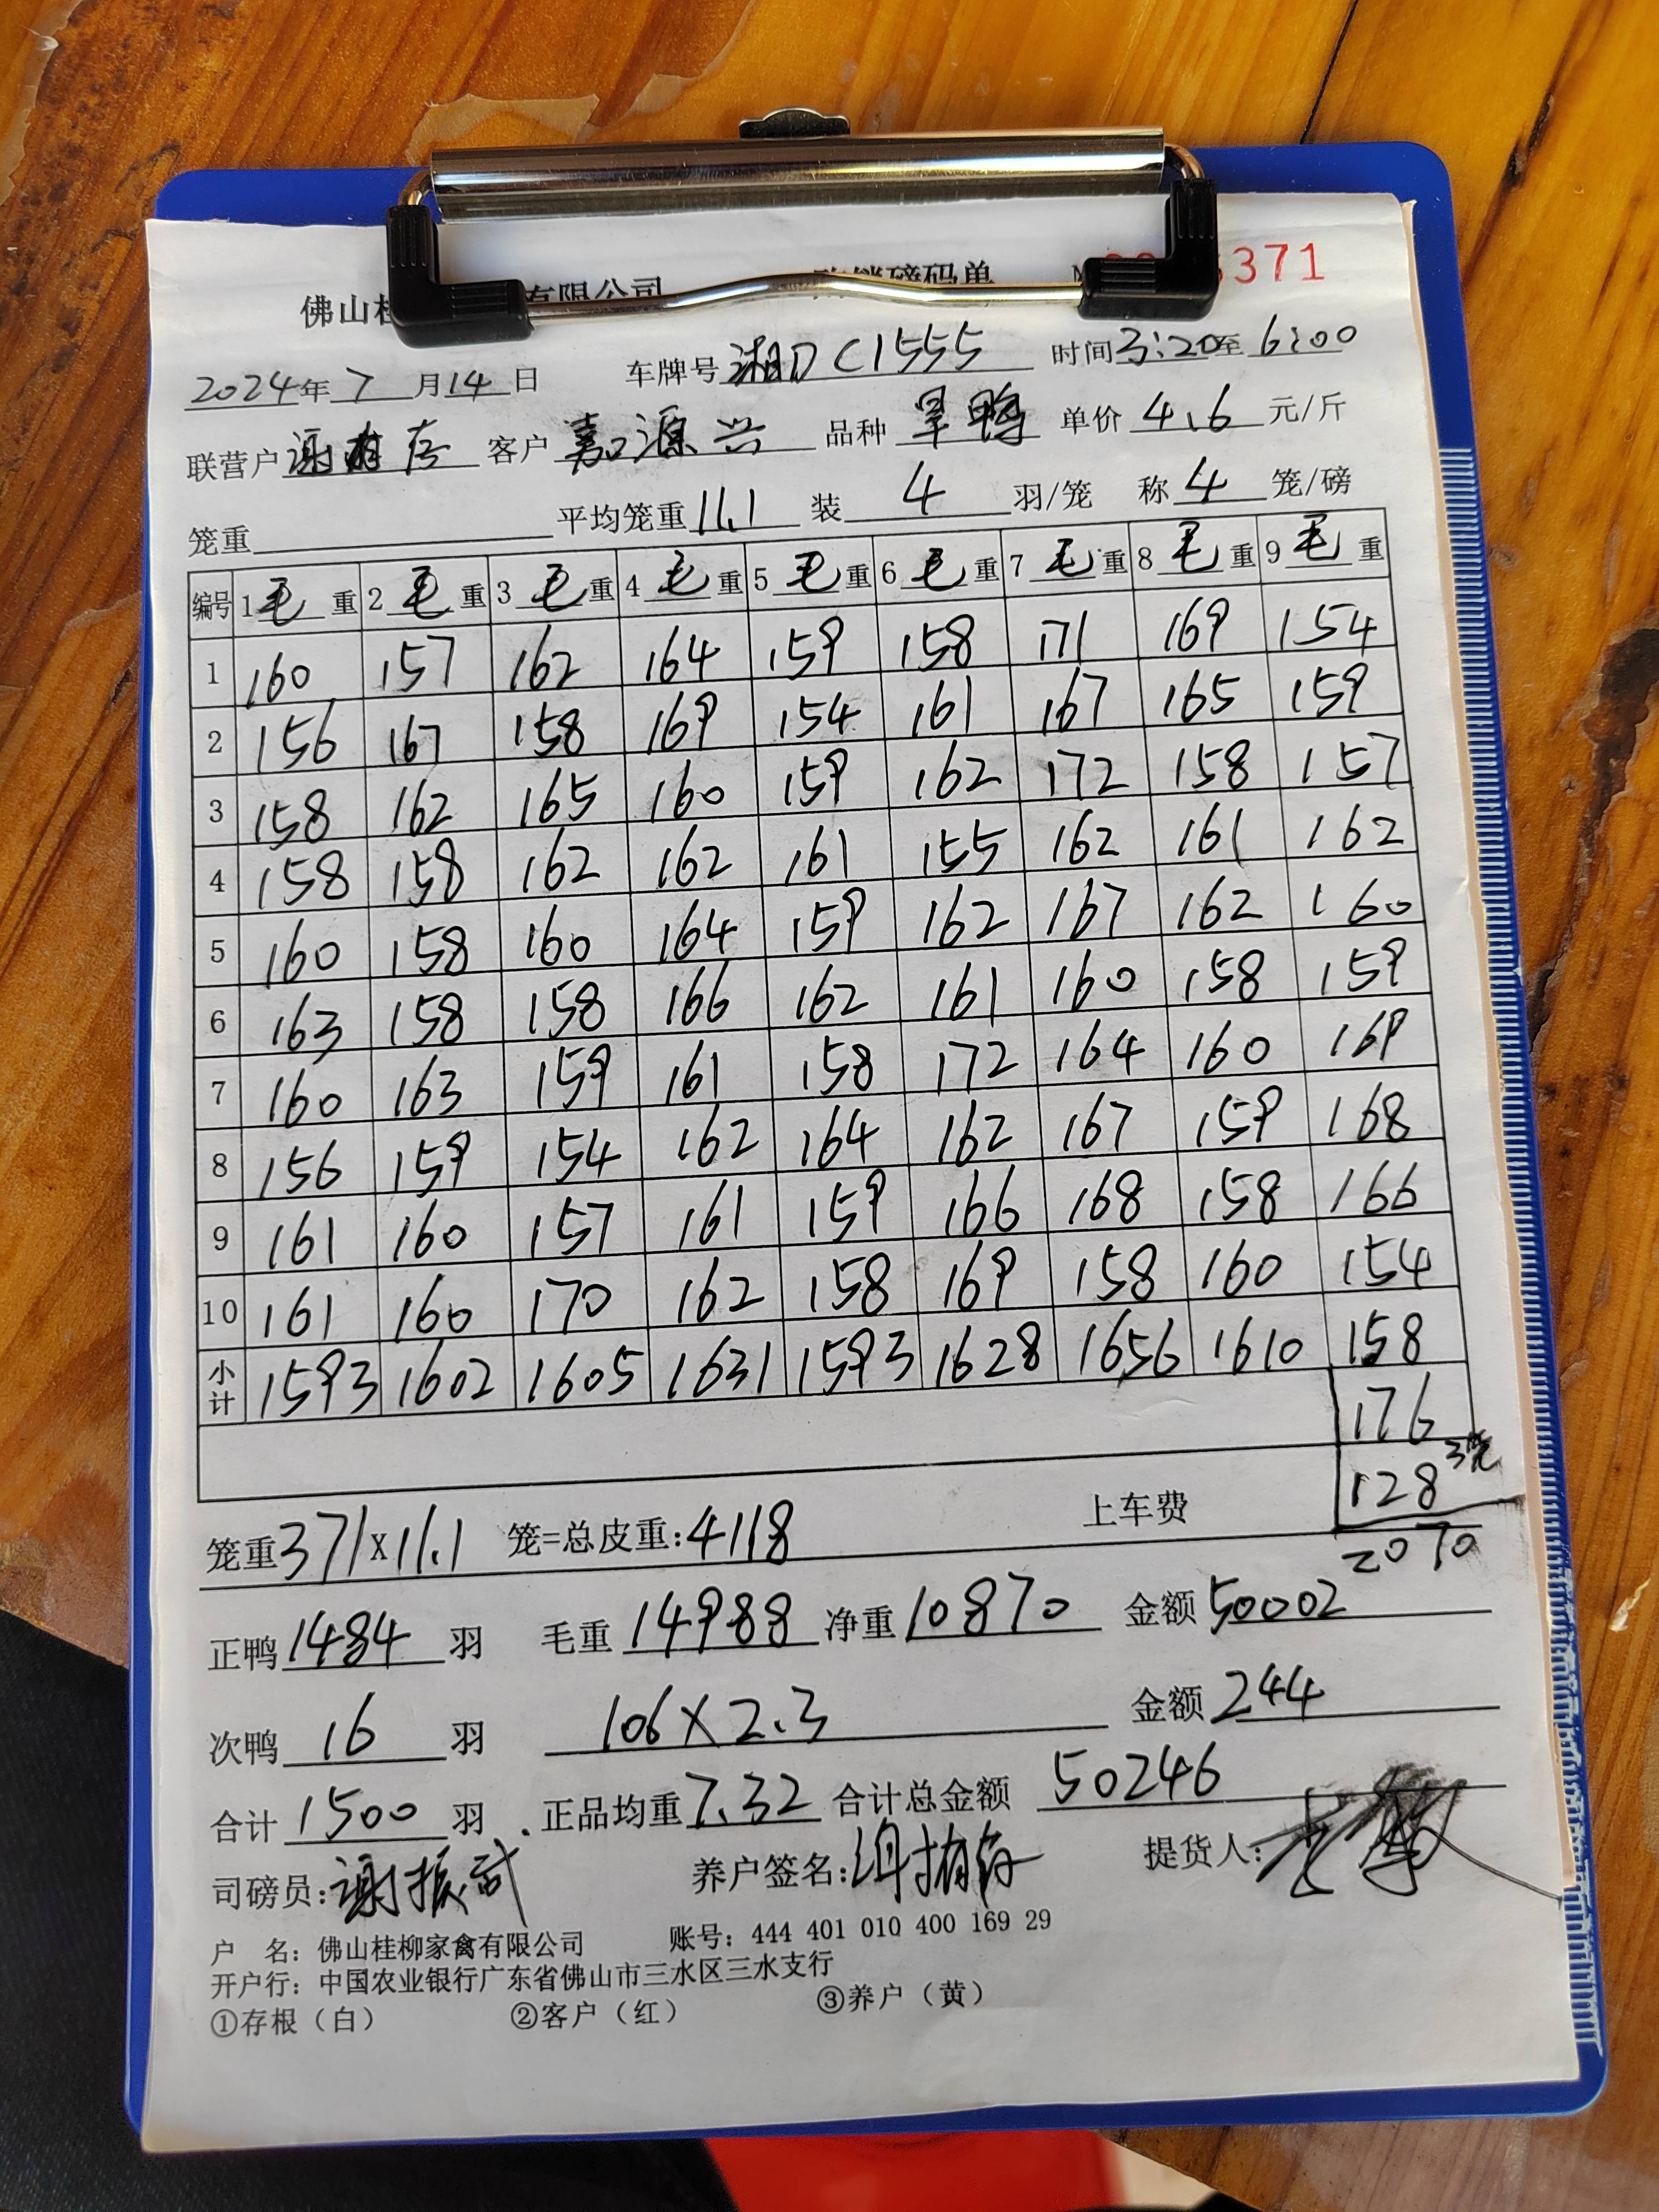 佛山桂 有限公司 磅码单 371
2024年 7 月 14 日 车牌号 湘D C1555 时间 3:20 至 6:00
联营户 谢 存 客户 嘉源兴 品种 旱鸭 单价 4.6 元/斤
笼重 平均笼重 11.1 装 4 羽/笼 称 4 笼/磅
编号 1 毛 重 2 毛 重 3 毛 重 4 毛 重 5 毛 重 6 毛 重 7 毛 重 8 毛 重 9 毛 重
1 160 157 162 164 159 158 171 169 154
2 156 167 158 169 154 161 167 165 159
3 158 162 165 160 159 162 172 158 157
4 158 158 162 162 161 155 162 161 162
5 160 158 160 164 159 162 167 162 160
6 163 158 158 166 162 161 160 158 159
7 160 163 159 161 158 172 164 160 169
8 156 159 154 162 164 162 167 159 168
9 161 160 157 161 159 166 168 158 166
10 161 160 170 162 158 169 158 160 154
小计 1593 1602 1605 1631 1593 1628 1656 1610 158
176
128 3笼
笼重 371×11.1 笼=总皮重: 4118 上车费 2070
正鸭 1484 羽 毛重 14988 净重 10870 金额 50002
次鸭 16 羽 106×2.3 金额 244
合计 1500 羽 正品均重 7.32 合计总金额 50246
司磅员: 谢振武 养户签名: 提货人:
户 名: 佛山桂柳家禽有限公司 账号: 444 401 010 400 169 29
开户行: 中国农业银行广东省佛山市三水区三水支行
①存根（白） ②客户（红） ③养户（黄）